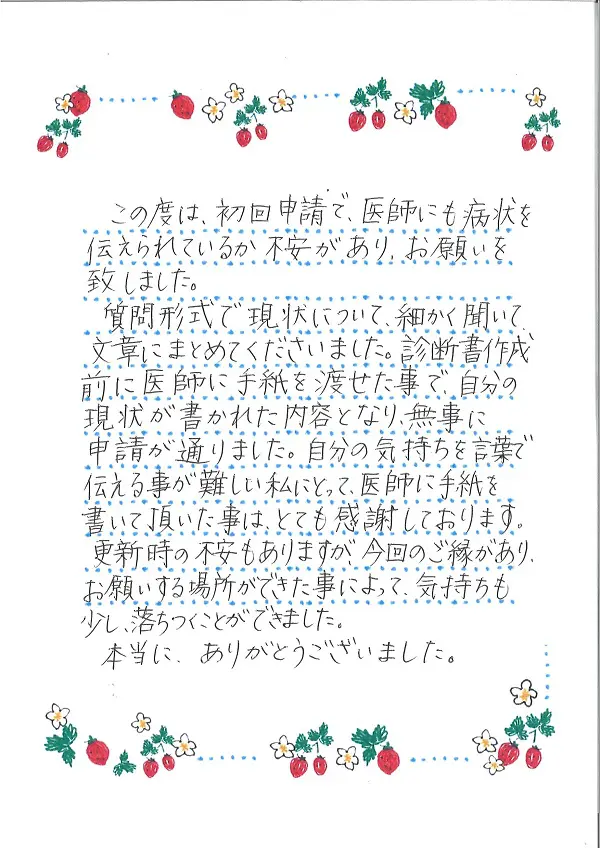 この度は、初回申請で、医師にも病状を
伝えられているか不安があり、お願いを
致しました。
質問形式で現状について、細かく聞いて、
文章にまとめてくださいました。診断書作成
前に医師に手紙を渡せた事で、自分の
現状が書かれた内容となり、無事に
申請が通りました。自分の気持ちを言葉で
伝える事が難しい私にとって、医師に手紙を
書いて頂いた事は、とても感謝しております。
更新時の不安もありますが、今回のご縁があり、
お願いする場所ができた事によって、気持ちも
少し、落ちつくことができました。
本当に、ありがとうございました。